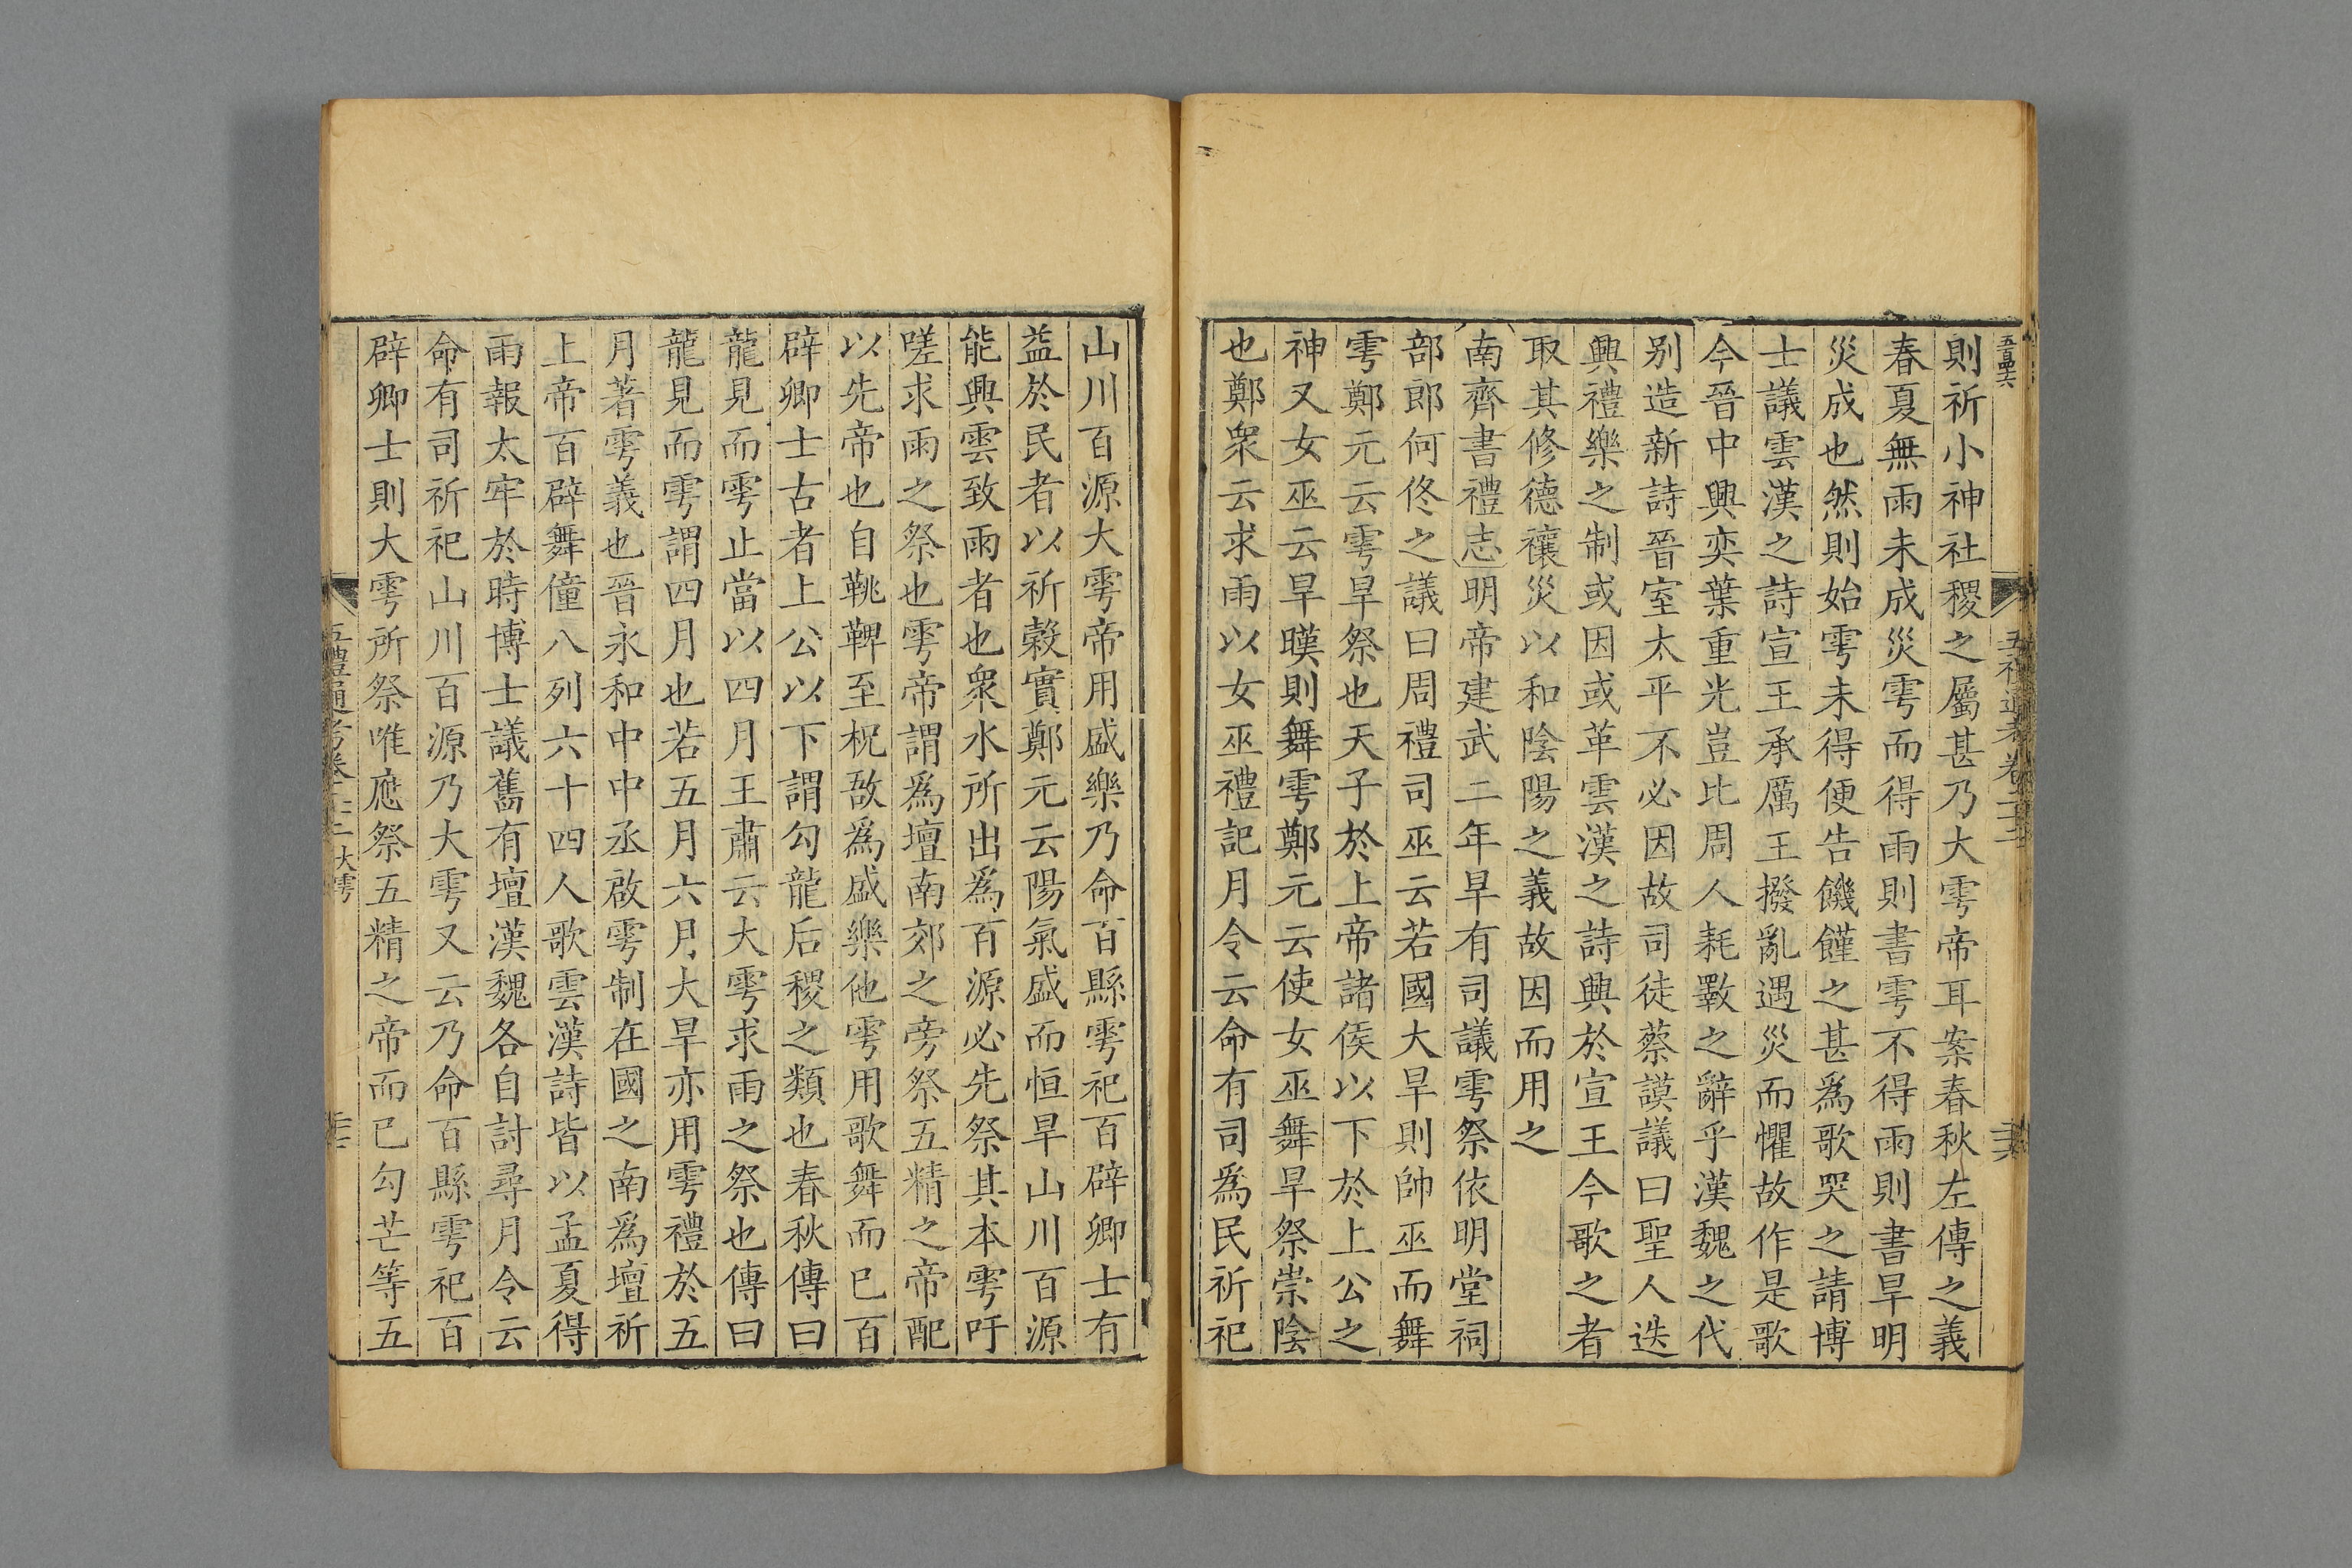 則祈小神社稷之屬甚乃大雩帝耳案春秋左傳之義
春夏無雨未成災雩而得雨則書雩不得雨則書旱明
災成也然則始雩未得便告饑饉之甚爲歌哭之請博
士議雲漢之詩宣王承厲王撥亂遇災而懼故作是歌
今晉中興奕葉重光豈比周人耗斁之辭乎漢魏之代
别造新詩晉室太平不必因故司徒蔡謨議曰聖人迭
興禮樂之制或因或革雲漢之詩興於宣王今歌之者
取其修德禳災以和陰陽之義故因而用之
南齊書禮志明帝建武二年旱有司議雩祭依明堂祠
部郎何佟之議曰周禮司巫云若國大旱則帥巫而舞
雩鄭元云雩旱祭也天子於上帝諸侯以下於上公之
神又女巫云旱暵則舞雩鄭元云使女巫舞旱祭崇陰
也鄭衆云求雨以女巫禮記月令云命有司爲民祈祀
山川百源大雩帝用盛樂乃命百縣雩祀百辟卿士有
益於民者以祈穀實鄭元云陽氣盛而恒旱山川百源
能興雲致雨者也衆水所出爲百源必先祭其本雩吁
嗟求雨之祭也雩帝謂爲壇南郊之旁祭五精之帝配
以先帝也自鞉鞞至柷敔爲盛樂他雩用歌舞而已百
辟卿士古者上公以下謂勾龍后稷之類也春秋傳曰
龍見而雩止當以四月王肅云大雩求雨之祭也傳曰
龍見而雩謂四月也若五月六月大旱亦用雩禮於五
月著雩義也晉永和中中丞啟雩制在國之南爲壇祈
上帝百辟舞僮八列六十四人歌雲漢詩皆以孟夏得
雨報太牢於時博士議舊有壇漢魏各自討尋月令云
命有司祈祀山川百源乃大雩又云乃命百縣雩祀百
辟卿士則大雩所祭唯應祭五精之帝而已勾芒等五
五禮通考卷二十二 大雩